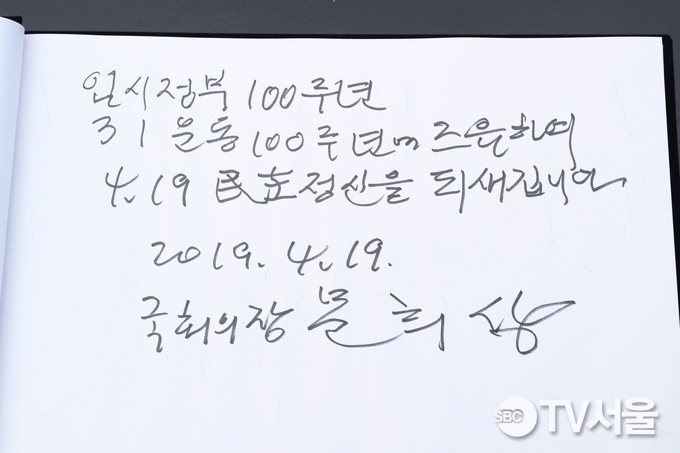 임시정부 100주년
3 1 운동 100주년에 즈음하여
4.19 民主정신을 되새깁니다
2019. 4. 19.
국회의장 문희상
SBC TV서울